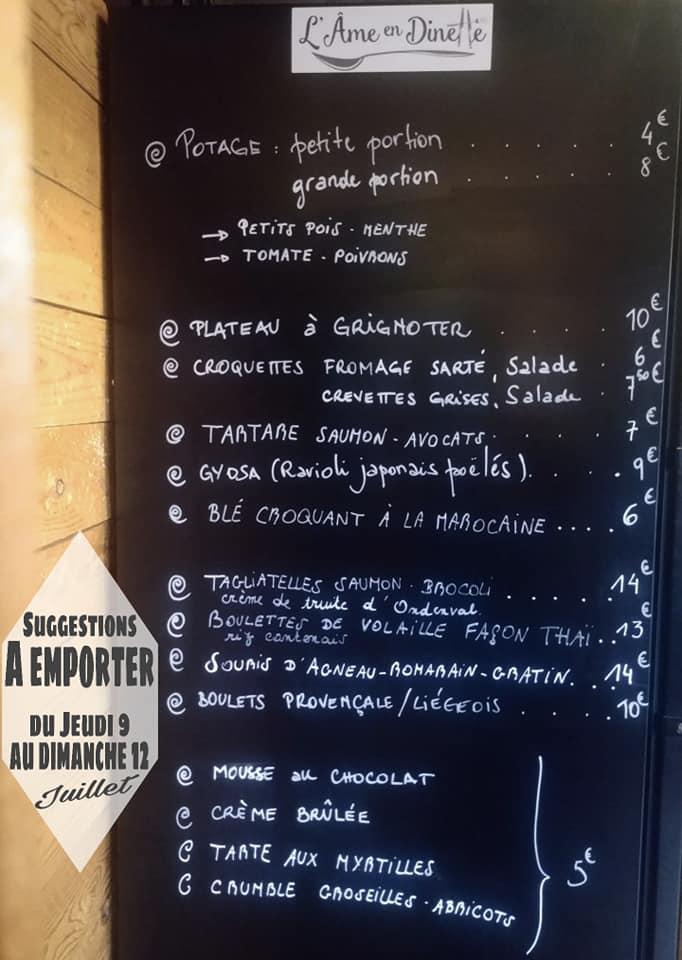 L'Âme en Dinette
POTAGE : petite portion . . . . . . 4€
grande portion . . . . . . 8€
→ PETITS POIS - MENTHE
→ TOMATE - POIVRONS
PLATEAU à GRIGNOTER . . . . . 10€
CROQUETTES FROMAGE SARTÉ, Salade . 6€
CREVETTES GRISES, Salade . 7,50€
TARTARE SAUMON - AVOCATS . . . . . 7€
GYOSA (Ravioli japonais poëlés). . . . 9€
BLÉ CROQUANT À LA MAROCAINE . . . . 6€
TAGLIATELLES SAUMON - BROCOLI . . . . . 14€
crème de truite d'Ondenval.
BOULETTES DE VOLAILLE FAÇON THAÏ . . 13€
riz cantonais
SOURIS D'AGNEAU - ROMARAIN - GRATIN. . 14€
BOULETS PROVENÇALE / LIÉGEOIS . . . . . 10€
MOUSSE au CHOCOLAT
CRÈME BRÛLÉE
TARTE AUX MYRTILLES
CRUMBLE GROSEILLES - ABRICOTS
5€
SUGGESTIONS
A EMPORTER
DU JEUDI 9
AU DIMANCHE 12
Juillet